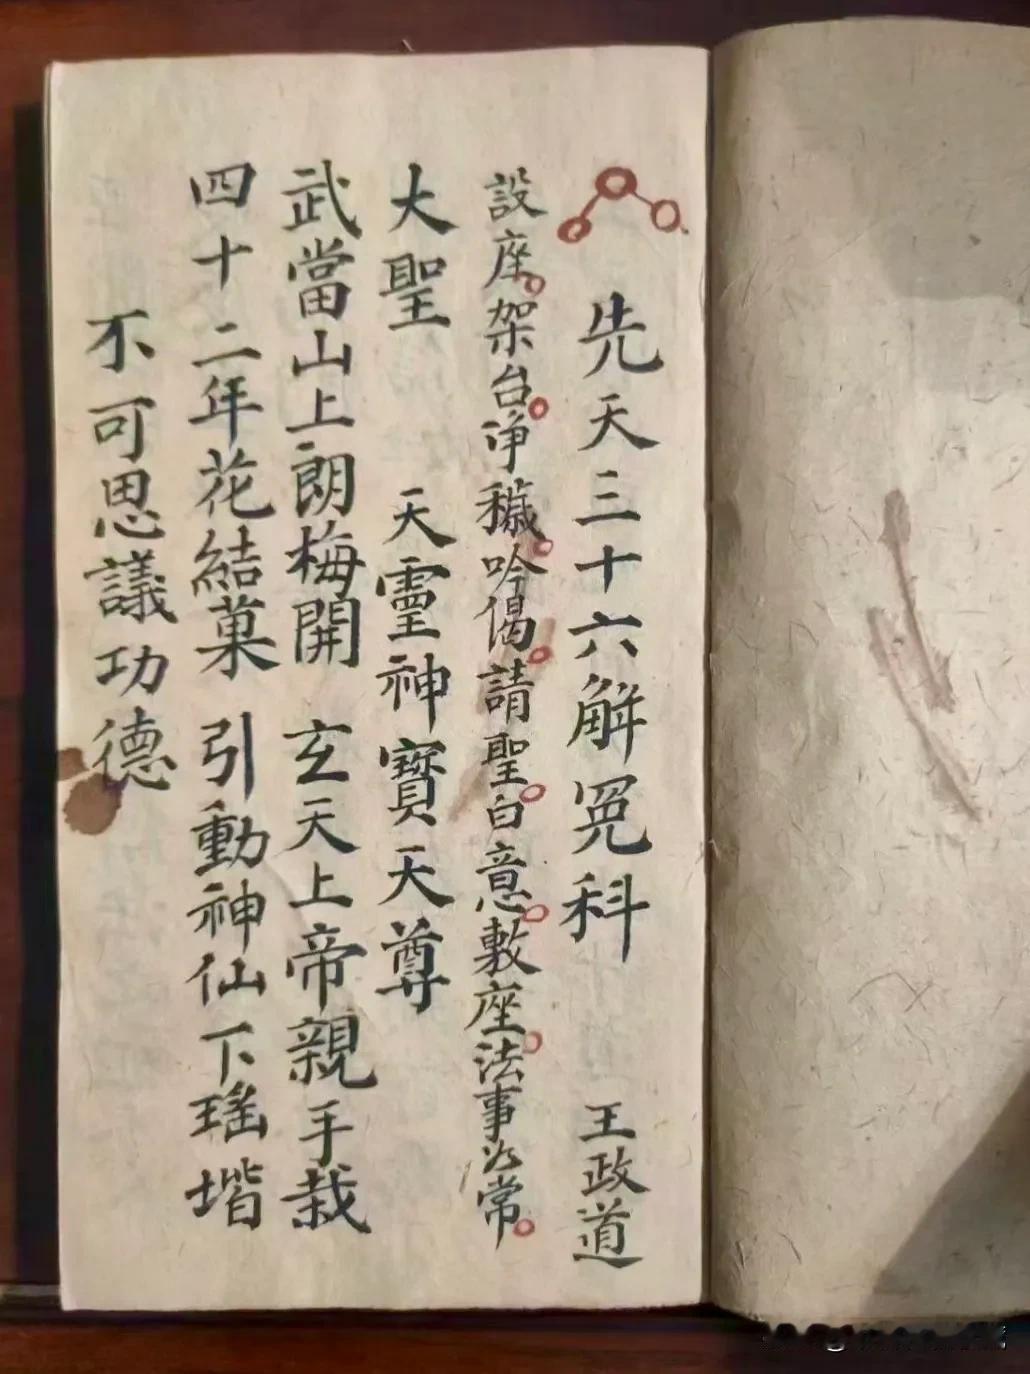 先天三十六解冤科 王政道
設座架台净穢吟偈請聖白意敷座法事如常
大聖 天靈神寶天尊
武當山上朗梅開 玄天上帝親手栽
四十二年花結菓 引動神仙下瑤堦
不可思議功德